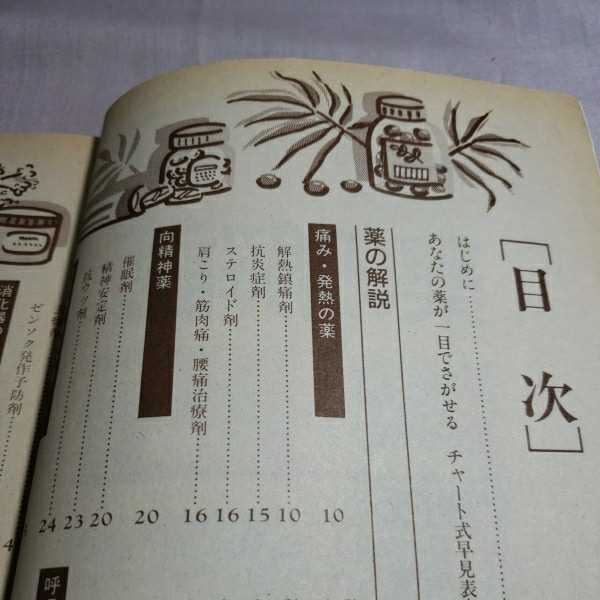 [目次]
はじめに
あなたの薬が一目でさがせる チャート式早見表
薬の解説
痛み・発熱の薬 10
解熱鎮痛剤 10
抗炎症剤 15
ステロイド剤 16
肩こり・筋肉痛・腰痛治療剤 16
向精神薬 20
催眠剤 20
精神安定剤 23
抗ウツ剤 24
呼
ゼンソク発作予防剤
消化器の